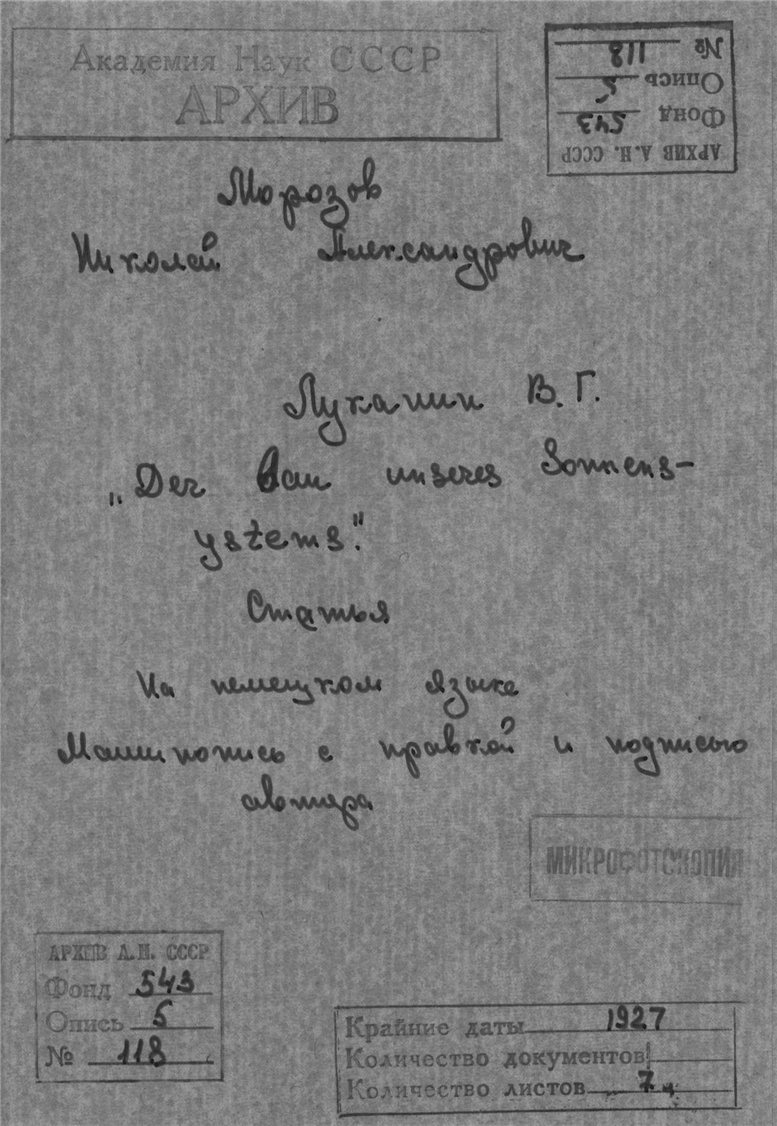 Академия Наук СССР
АРХИВ
№ 118
Опись 5
Фонд 543
АРХИВ А.Н. СССР
Морозов
Николай Александрович
Луканин В. Г.
„Der Bau unseres Sonnens-
ystems."
Статья
На немецком языке
Машинопись с правкой и подписью
автора
МИКРОФОТОКОПИЯ
АРХИВ А.Н. СССР
Фонд 543
Опись 5
№ 118
Крайние даты 1927
Количество документов
Количество листов 7